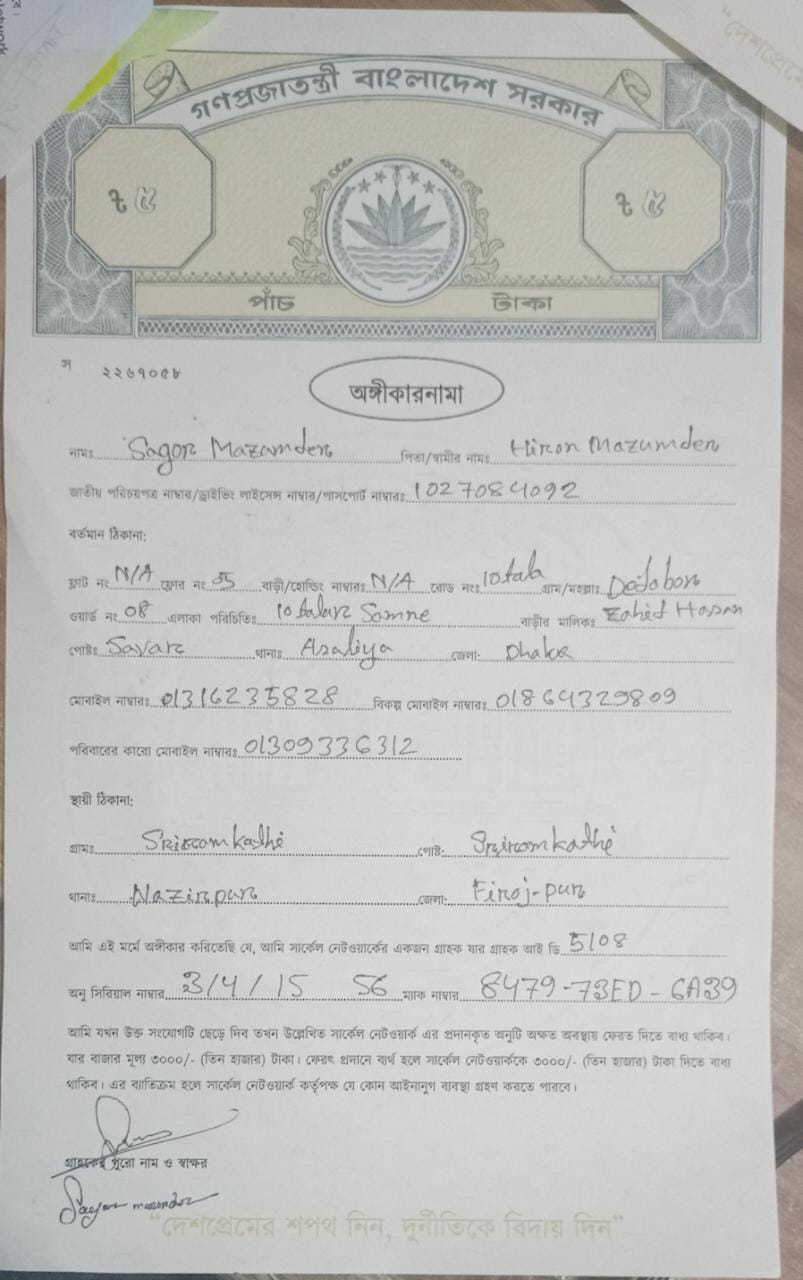 গণপ্রজাতন্ত্রী বাংলাদেশ সরকার
৳ ৫ ৳ ৫
পাঁচ টাকা
স ২২৬৭০৫৮
অঙ্গীকারনামা
নামঃ Sagor Mazumder পিতা/স্বামীর নামঃ Hiron Mazumder
জাতীয় পরিচয়পত্র নাম্বার/ড্রাইভিং লাইসেন্স নাম্বার/পাসপোর্ট নাম্বারঃ 1027084092
বর্তমান ঠিকানা:
ফ্লাট নং N/A ফ্লোর নং 05 বাড়ী/হোল্ডিং নাম্বারঃ N/A রোড নংঃ 10 tala গ্রাম/মহল্লাঃ
ওয়ার্ড নং 08 এলাকা পরিচিতিঃ 10 talar Samne বাড়ীর মালিকঃ Zahid Hasan
পোষ্টঃ Savar থানাঃ Asaliya জেলা: Dhaka
মোবাইল নাম্বারঃ 01316235828 বিকল্প মোবাইল নাম্বারঃ 01864329809
পরিবারের কারো মোবাইল নাম্বারঃ 01309336312
স্থায়ী ঠিকানা:
গ্রামঃ Sriramkathi পোষ্ট: Sriramkathi
থানাঃ Nazirpur জেলা: Firoj-pur
আমি এই মর্মে অঙ্গীকার করিতেছি যে, আমি সার্কেল নেটওয়ার্কের একজন গ্রাহক যার গ্রাহক আই ডি 5108
অনু সিরিয়াল নাম্বার 3/4/15 56 ম্যাক নাম্বার 8479-73ED-6A39
আমি যখন উক্ত সংযোগটি ছেড়ে দিব তখন উল্লেখিত সার্কেল নেটওয়ার্ক এর প্রদানকৃত অনুটি অক্ষত অবস্থায় ফেরত দিতে বাধ্য থাকিব।
যার বাজার মূল্য ৩০০০/- (তিন হাজার) টাকা। ফেরৎ প্রদানে ব্যর্থ হলে সার্কেল নেটওয়ার্ককে ৩০০০/- (তিন হাজার) টাকা দিতে বাধ্য
থাকিব। এর ব্যতিক্রম হলে সার্কেল নেটওয়ার্ক কর্তৃপক্ষ যে কোন আইনানুগ ব্যবস্থা গ্রহণ করতে পারবে।
গ্রাহকের পুরো নাম ও স্বাক্ষর
Sagor mazumder
"দেশপ্রেমের শপথ নিন, দুর্নীতিকে বিদায় দিন"